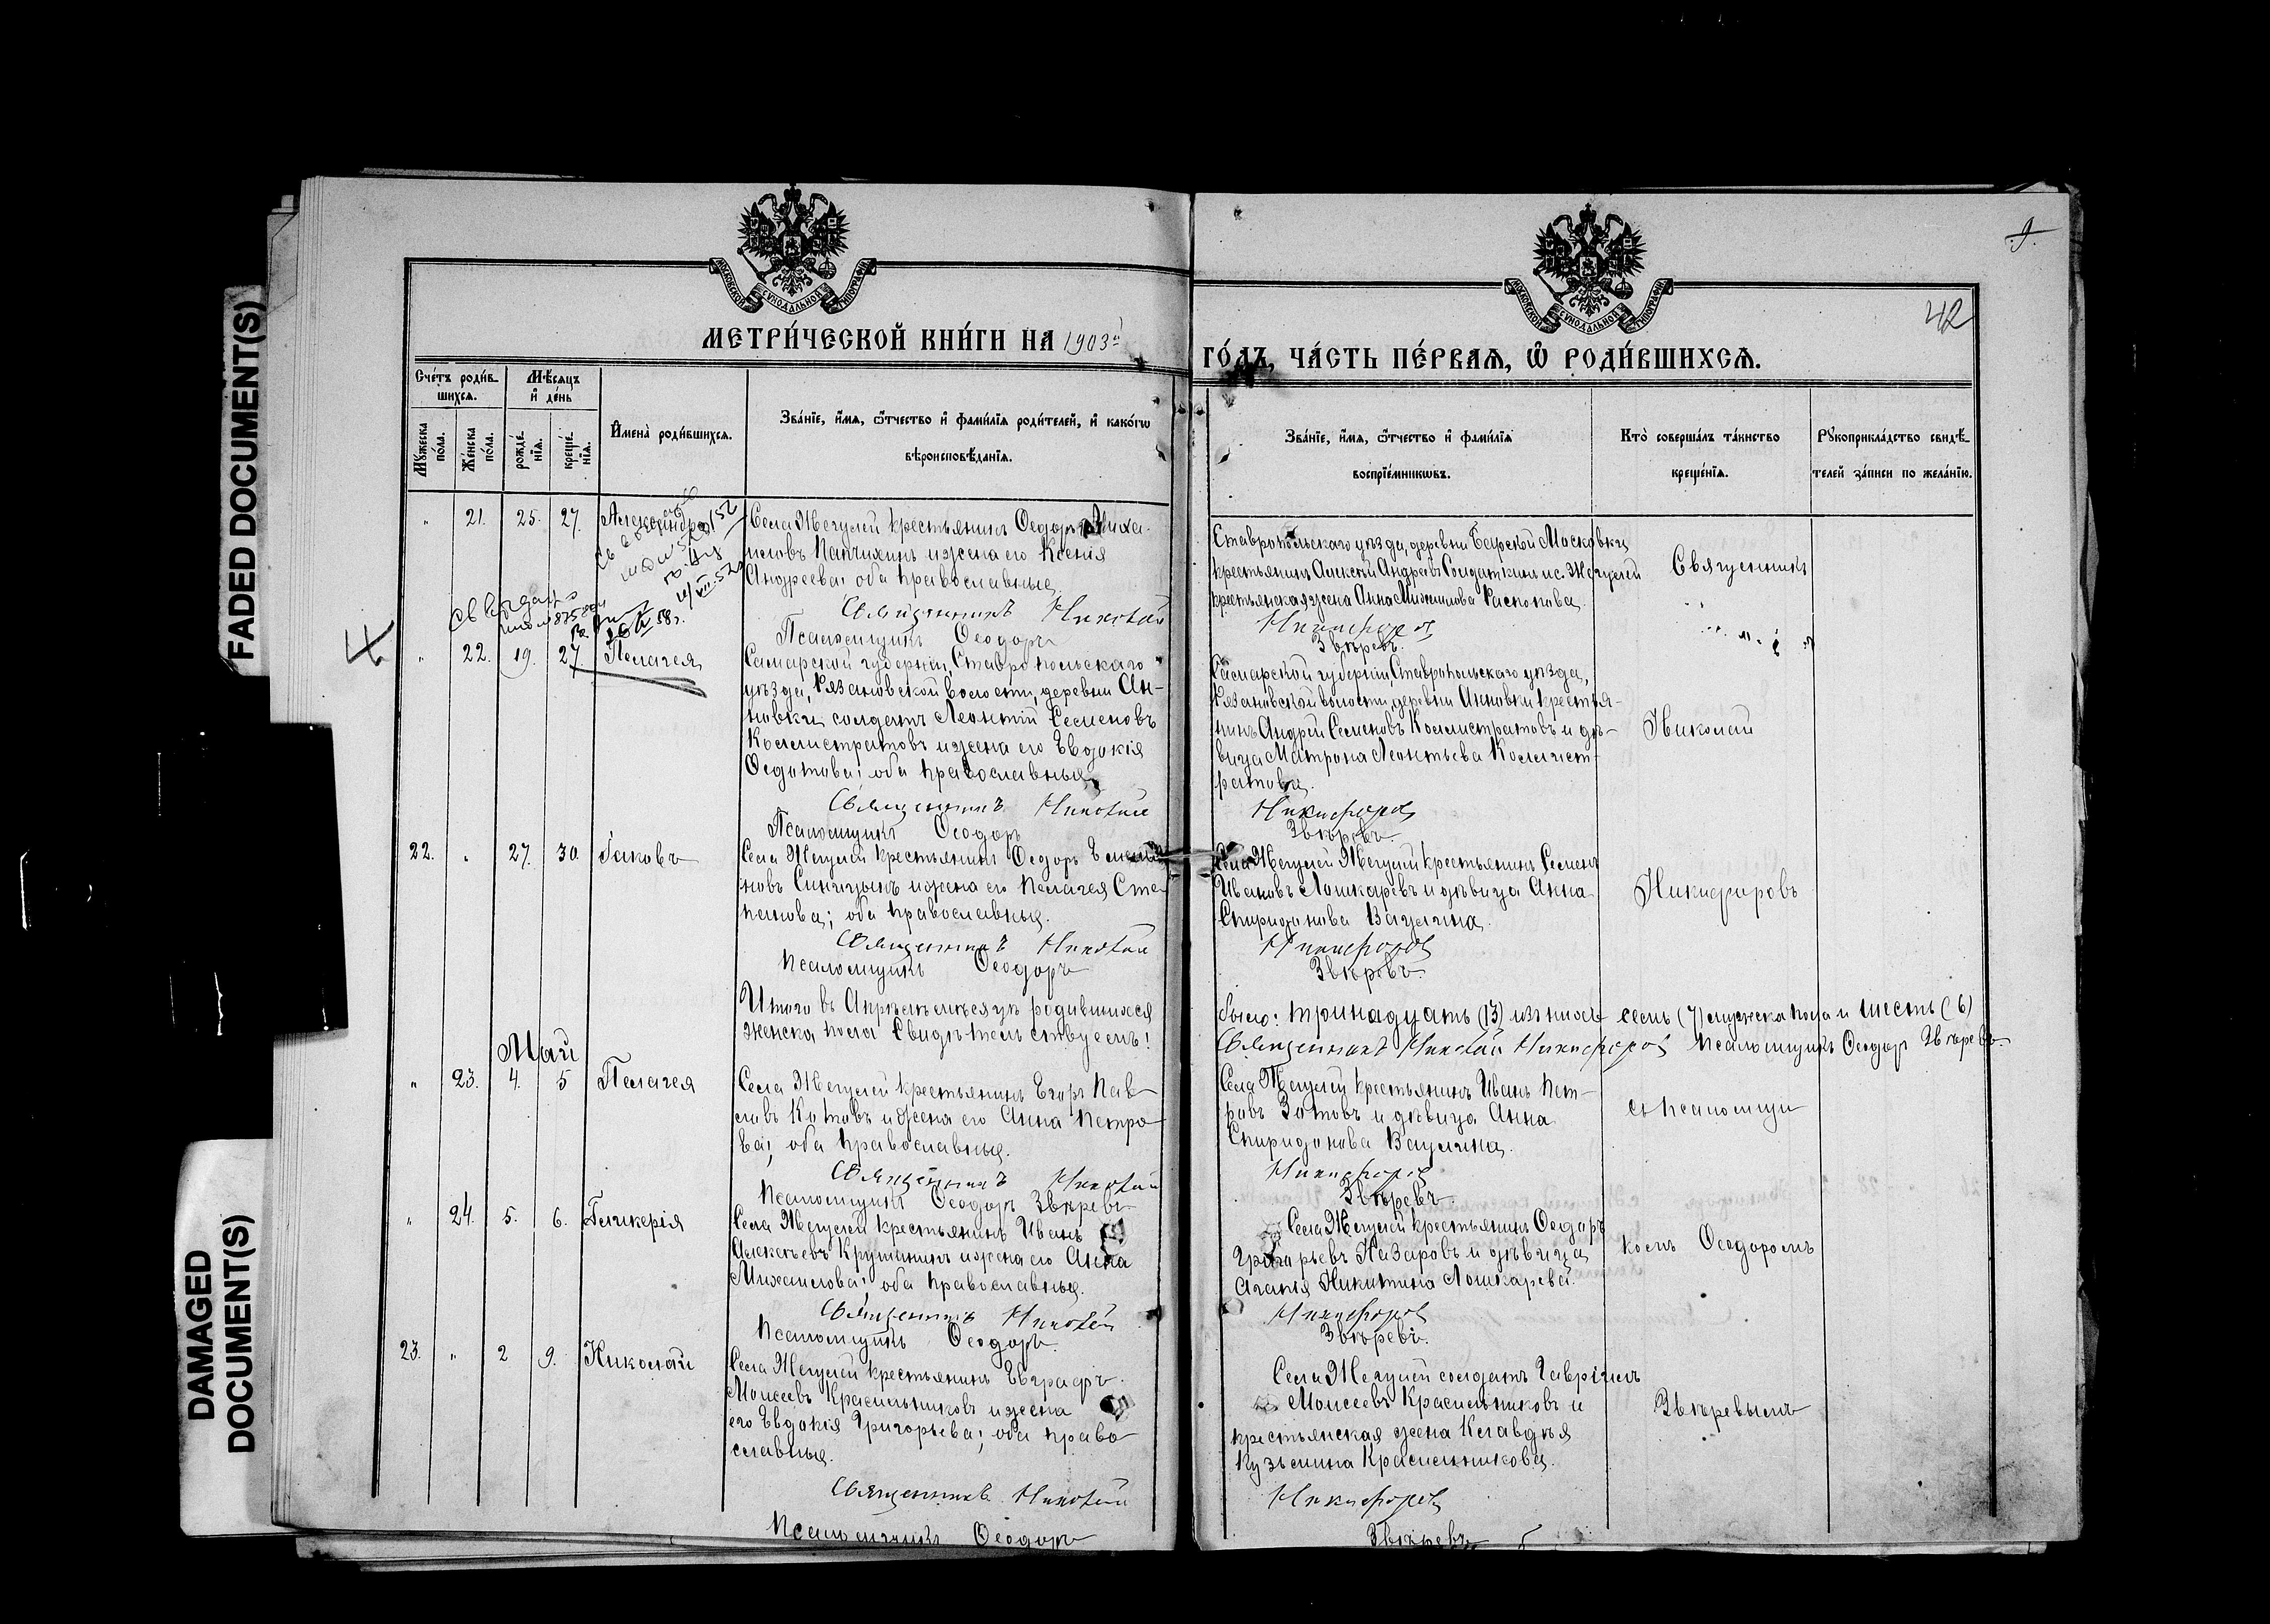 FADED DOCUMENT(S)
DAMAGED
DOCUMENT(S)
9.
42
МОСКОВСКОЙ СѴНОДАЛЬНОЙ ТИПОГРАФІИ
МОСКОВСКОЙ СѴНОДАЛЬНОЙ ТИПОГРАФІИ
МЕТРИ́ЧЕСКОЙ КНИ́ГИ НА 1903й
ГО́ДЪ, ЧА́СТЬ ПЕ́РВАѦ, Ѡ РОДИ́ВШИХСѦ.
Сче́тъ роди́в-
шихсѧ.
Мѣ́сѧцъ
и҆ де́нь
Мꙋ́жеска
по́ла.
Же́нска
по́ла.
рожде́-
нїѧ.
креще́-
нїѧ.
И҆мена̀ роди́вшихсѧ.
Зва́нїе, и҆́мѧ, ѻ҆́тчество и҆ фами́лїѧ роди́телей, и҆ како́гѡ
вѣроисповѣ́данїѧ.
Зва́нїе, и҆́мѧ, ѻ҆́тчество и҆ фами́лїѧ
воспрїе́мникѡвъ.
Кто̀ соверша́лъ та́инство
креще́нїѧ.
Рꙋкоприкла́дство свидѣ́-
телей за́писи по жела́нїю.
" 21. 25. 27. Александра
Села Жегулей крестьянинъ Ѳеодоръ Миха-
иловъ Папчихинъ и жена его Ксенія
Андреева; оба православные
Священникъ Николай
Псаломщикъ Ѳеодоръ
Ставропольскаго уѣзда, деревни Борской Московки
крестьянинъ Алексѣй Андреевъ Солдаткинъ и с. Жегулей
крестьянская жена Анна Михаилова Расколова.
Никифоровъ
Звѣревъ.
Священникъ
" 22. 19. 27. Пелагея
Самарской губерніи, Ставропольскаго
уѣзда, Рязановской волости, деревни Ан-
новки солдатъ Леонтій Семеновъ
Коллистратовъ и жена его Евдокія
Ѳедотова; оба православные
Священникъ Николай
Псаломщикъ Ѳеодоръ
Самарской губерніи, Ставропольскаго уѣзда,
Рязановской волости, деревни Анновки крестья-
нинъ Андрей Семеновъ Коллистратовъ и дѣ-
вица Матрона Леонтьева Коллист-
ратова.
Никифоровъ
Звѣревъ.
Николай
22. " 27. 30. Іаковъ
Села Жегулей крестьянинъ Ѳеодоръ Емелья-
новъ Синицынъ и жена его Пелагея Сте-
панова; оба православные.
Священникъ Николай
Псаломщикъ Ѳеодоръ
Села Жегулей Жегулей крестьянинъ Семенъ
Ивановъ Лошкаревъ и дѣвица Анна
Спиридонова Вагулина.
Никифоровъ
Звѣревъ.
Никифоровъ
Итого въ Апрѣлѣ мѣсяцѣ родившихся
женска пола Свидѣтельствуемъ!
было: тринадцать (13) изъ нихъ семь (7) мужеска пола и шесть (6)
Священникъ Николай Никифоровъ Псаломщикъ Ѳеодоръ Звѣревъ.
Май
" 23. 4. 5 Пелагея
Села Жегулей крестьянинъ Егоръ Пав-
ловъ Котовъ и жена его Анна Петро-
ва; оба православные.
Священникъ Николай
Псаломщикъ Ѳеодоръ Звѣревъ
Села Жегулей крестьянинъ Иванъ Пет-
ровъ Зотовъ и дѣвица Анна
Спиридонова Вагулина.
Никифоровъ
Звѣревъ.
съ псаломщи
" 24. 5. 6. Гликерія
Села Жегулей крестьянинъ Иванъ
Алексѣевъ Крупинъ и жена его Анна
Михаилова; оба православные.
Священникъ Николай
Псаломщикъ Ѳеодоръ.
Села Жегулей крестьянинъ Ѳеодоръ
Григорьевъ Назаровъ и дѣвица
Агаѳья Никитина Лошкарева.
Никифоровъ
Звѣревъ.
комъ Ѳеодоромъ
23. " 2 9. Николай
Села Жегулей крестьянинъ Евграфъ
Моисеевъ Красильниковъ и жена
его Евдокія Григорьева; оба право
славные.
Священникъ Николай
Псаломщикъ Ѳеодоръ
Села Жегулей солдатъ Гавріилъ
Моисеевъ Красильниковъ и
крестьянская жена Клавдія
Кузьмина Красильникова.
Никифоровъ
Звѣревъ
Звѣревымъ